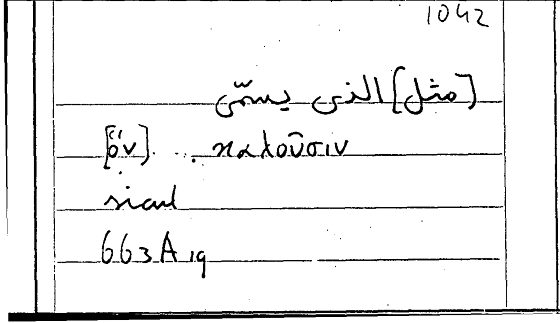 1042
[مثل] الذى يسمّى
[ὅν] ... καλοῦσιν
sicut
663A19